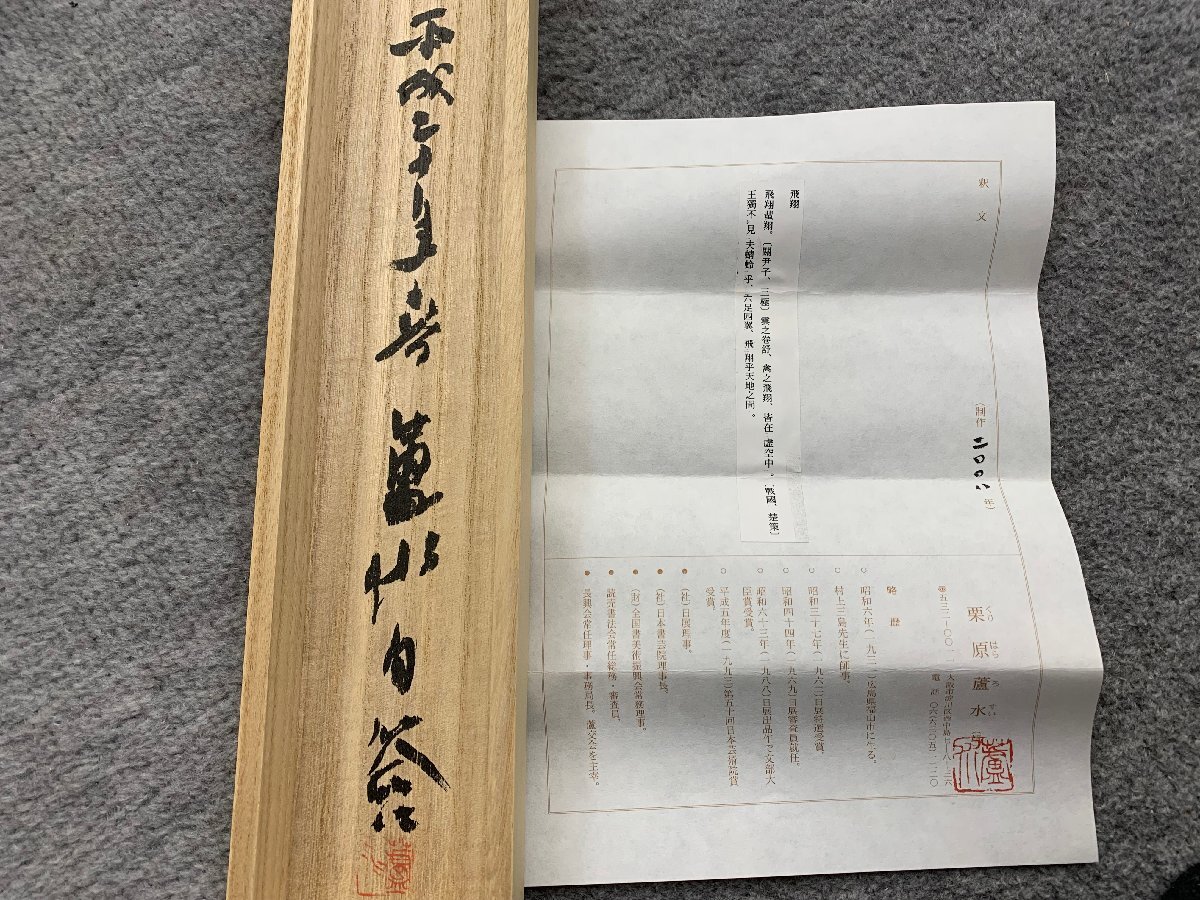 平成二十年春 蘆水自署
釈文
飛翔
飛翔蓋翔。〔關尹子、三極〕雲之卷舒、禽之飛翔、皆在虛空中。〔戰國、楚策〕
王獨不見夫蜻蛉乎、六足四翼、飛翔乎天地之間。
(制作 二〇〇八 年)
栗原蘆水
くり はら ろ すい
略歴
○ 昭和六年(一九三一)広島県福山市に生る。
○ 村上三島先生に師事。
○ 昭和三十七年(一九六二)日展特選受賞。
○ 昭和四十四年(一九六九)日展審査員就任。
○ 昭和六十三年(一九八八)日展出品作で文部大
臣賞受賞。
○ 平成五年度(一九九三)第五十回日本芸術院賞
受賞。
● (社)日展理事。
● (社)日本書芸院理事長。
● (財)全国書美術振興会常務理事。
● 読売書法会常任総務・審査員。
● 長興会常任理事・事務局長。蘆交会を主宰。